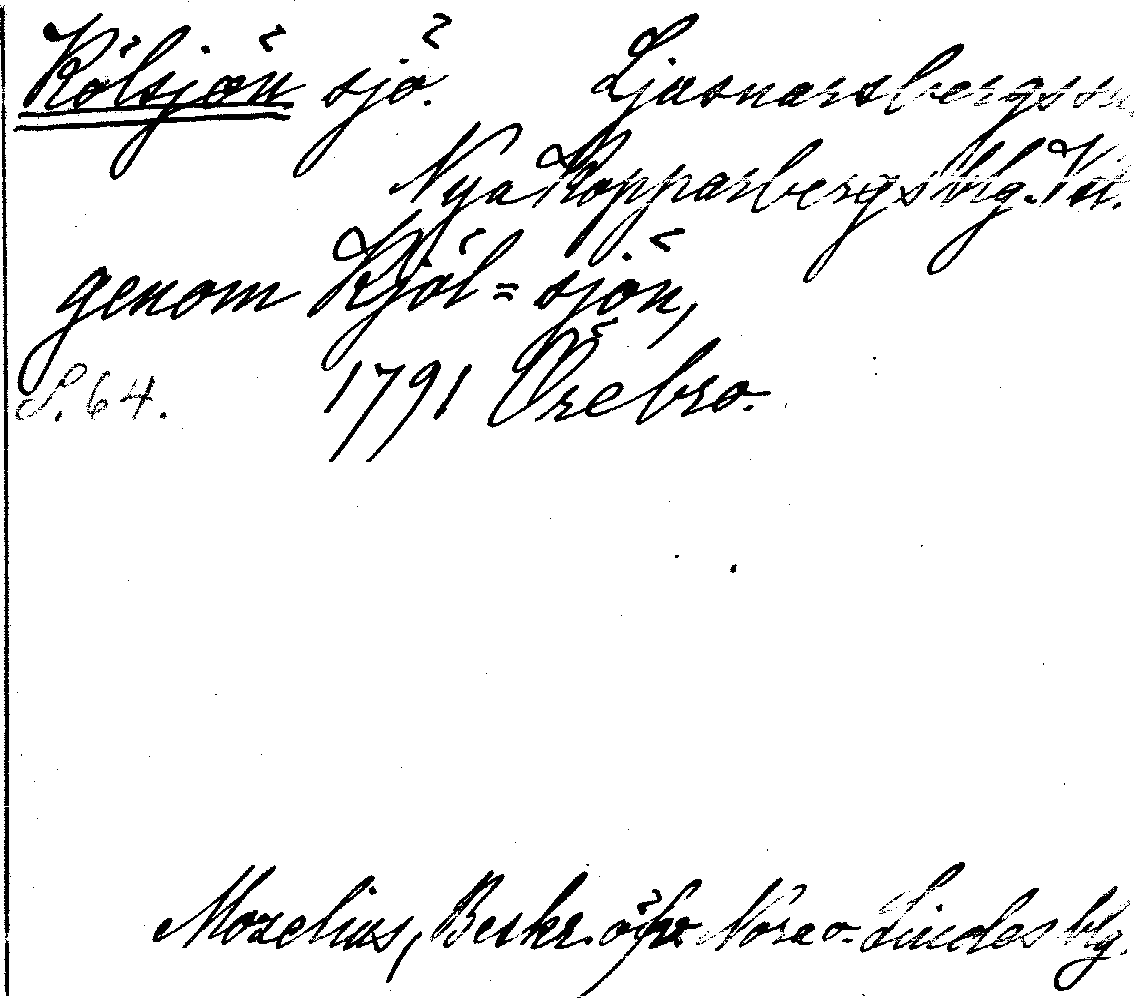 Kölsjön sjö. Ljusnarsbergs sn.
Nya Kopparbergs blg. Vstl.
genom Kjöl=sjön,
S. 64. 1791 Örebro.
Mozelius, Beskr. öfv Nora o. Lindes blg.